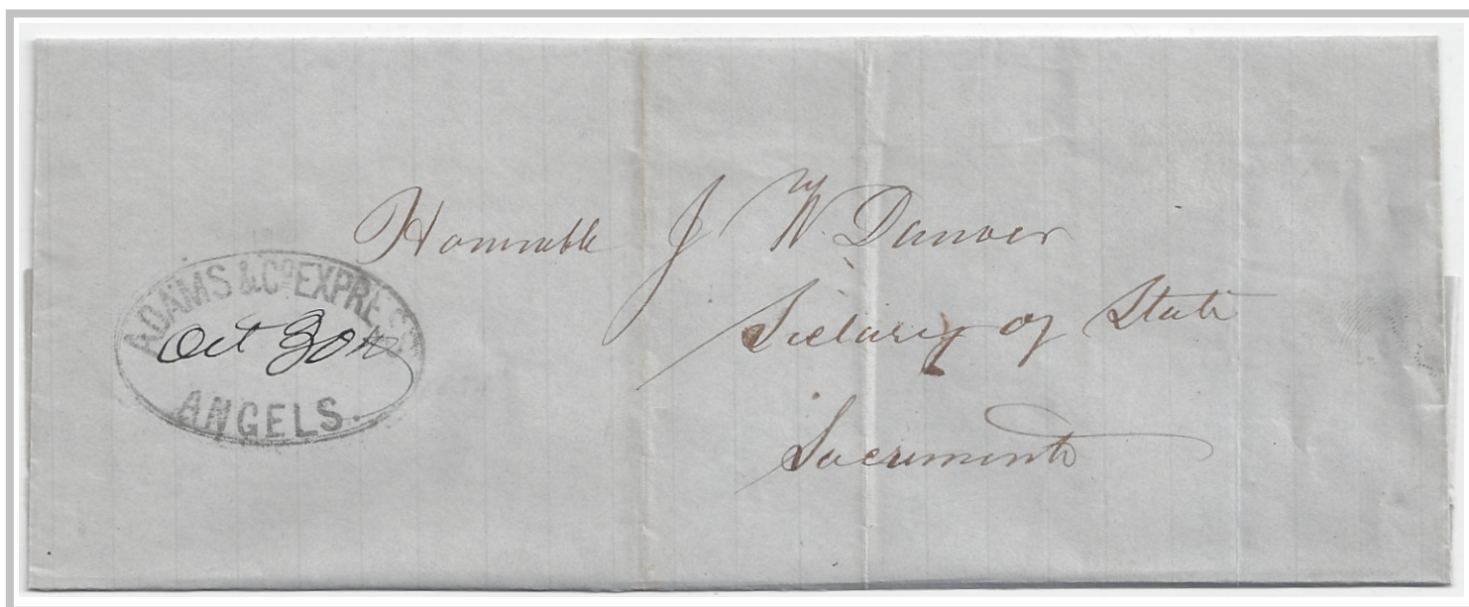 Honorable J W Danver
Secretary of State
Sacramento
ADAMS & Co EXPRESS
Oct 30th
ANGELS.